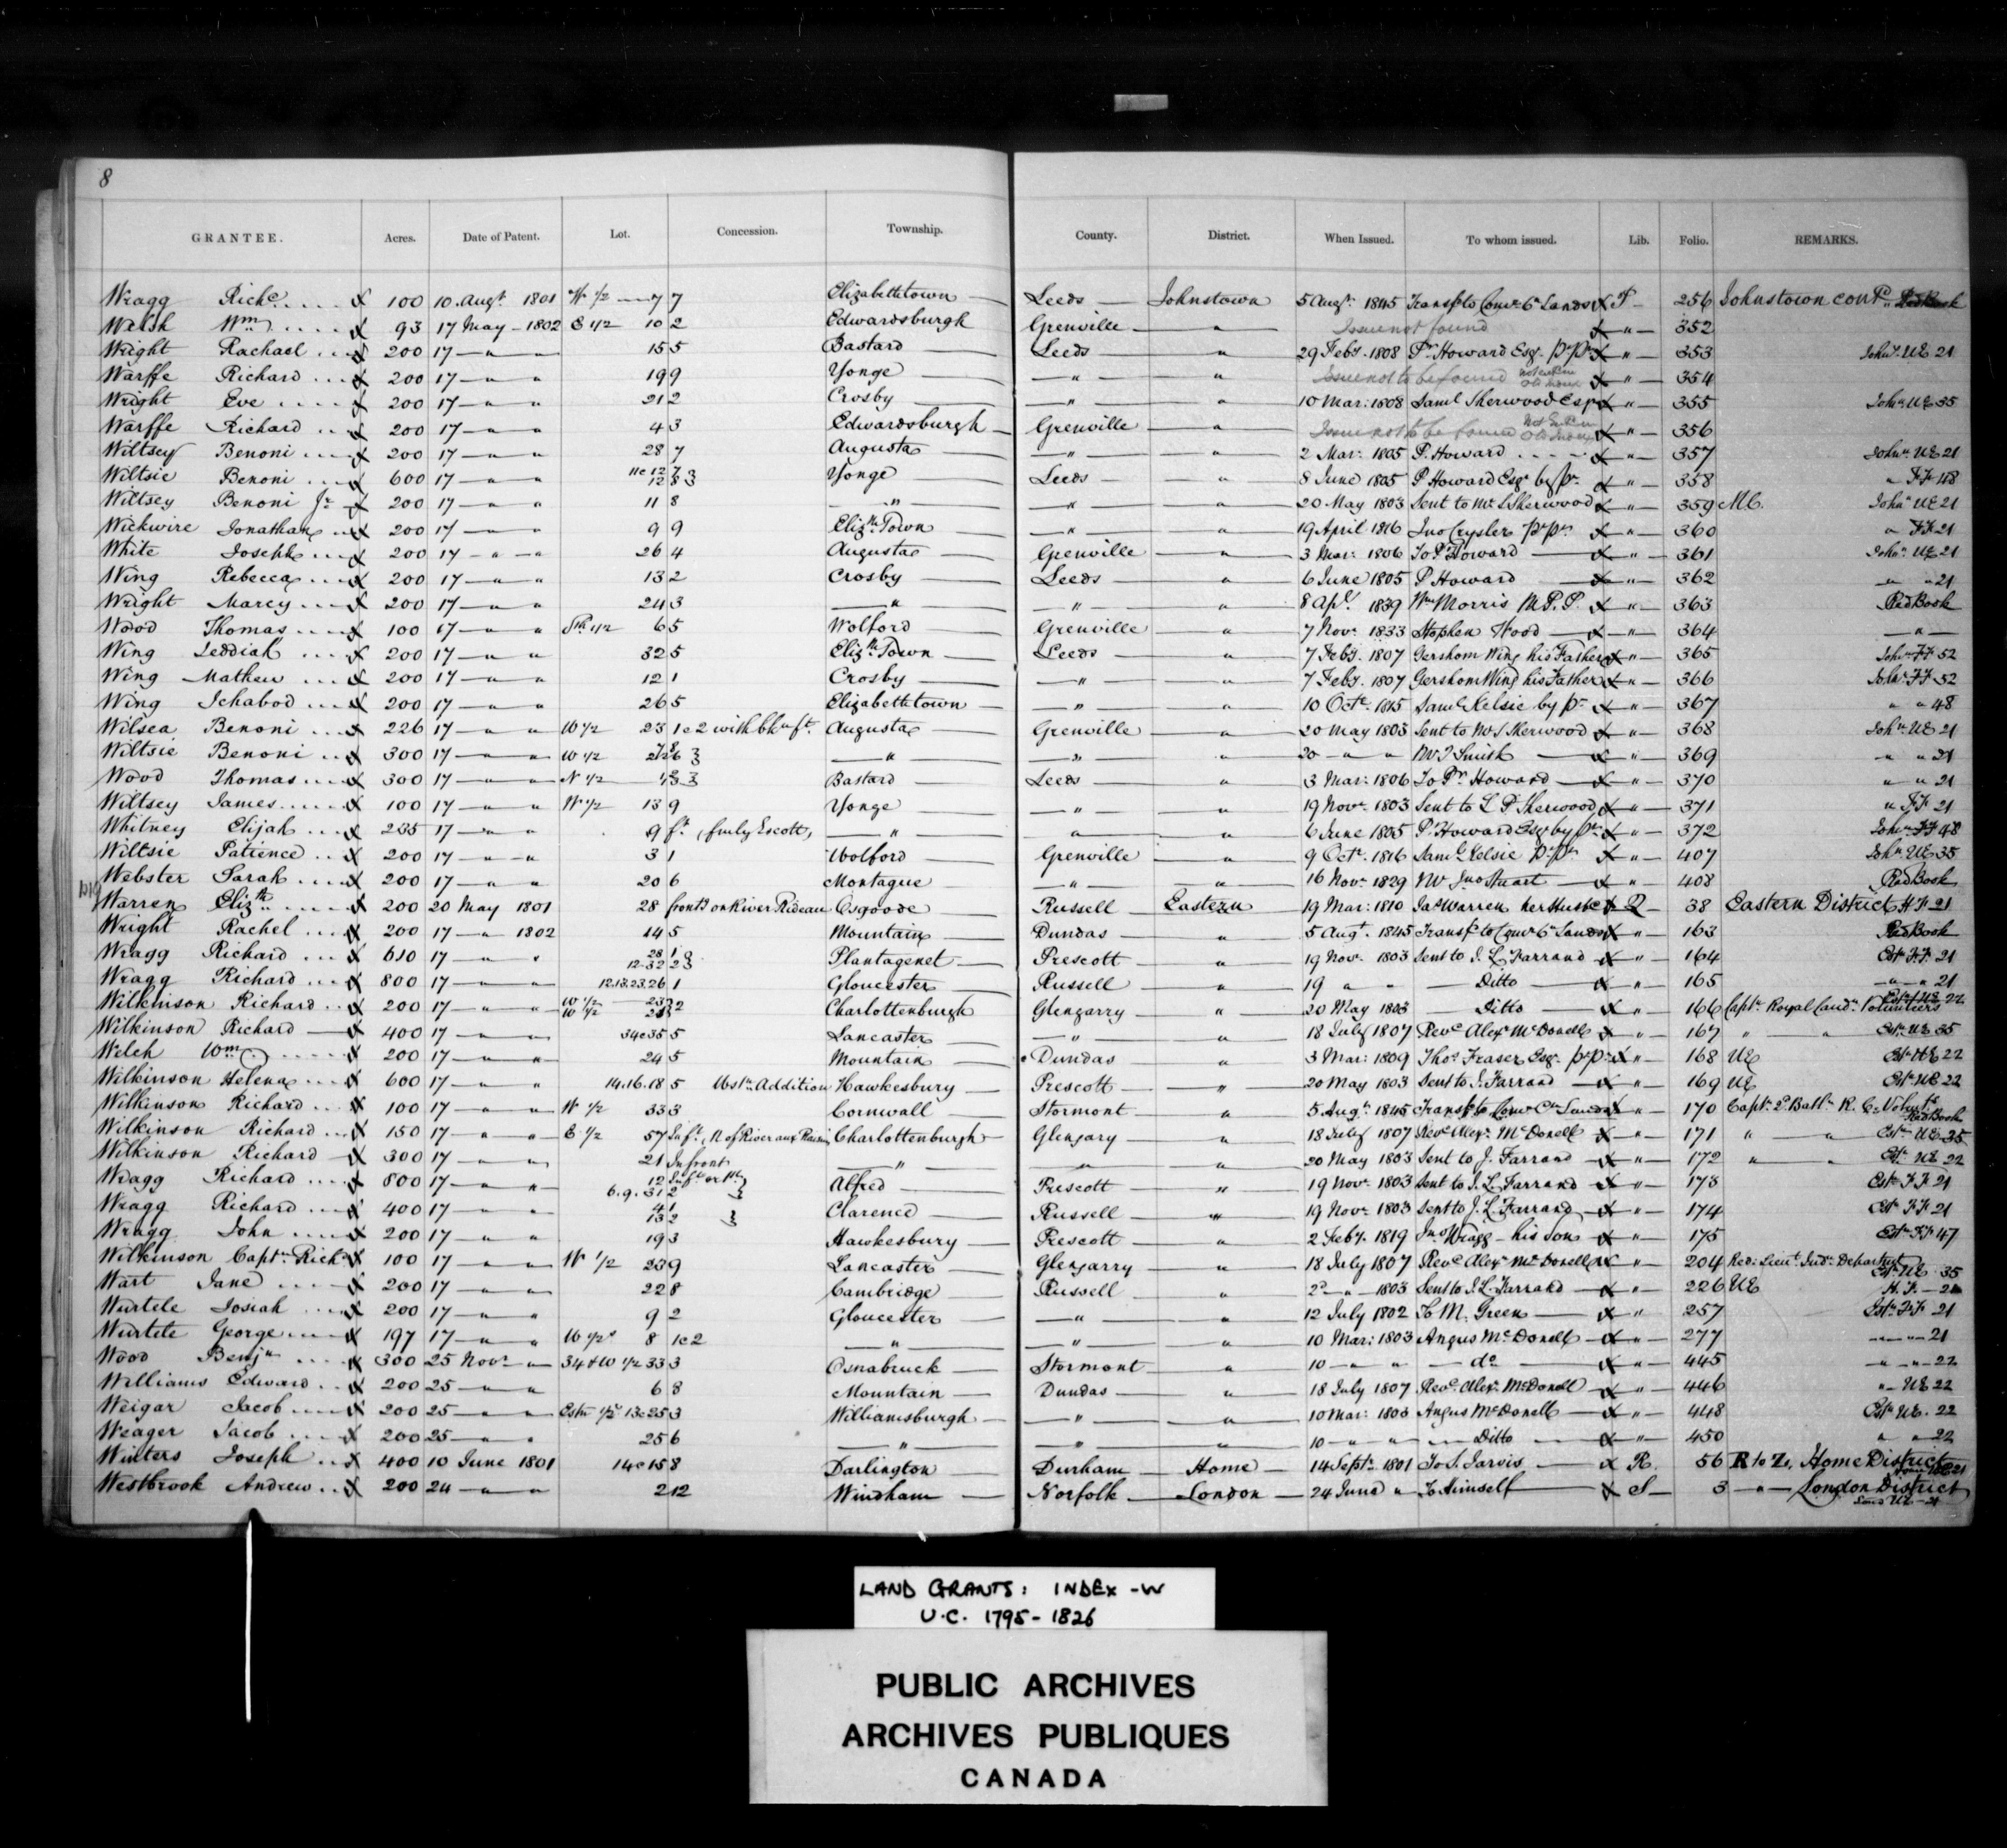 8
GRANTEE. Acres. Date of Patent. Lot. Concession. Township. County. District. When Issued. To whom issued. Lib. Folio. REMARKS.
Wragg Richd . . . . x 100 10 Augt 1801 W 1/2 — 7 7 Elizabethtown — Leeds — Johnstown 5 Augt 1845 Transfd to Comr Cn Lands x P — 256 Johnstown contd Red Book
Welsh Wm . . . . x 93 17 May — 1802 E 1/2 10 2 Edwardsburgh Grenville — " Issue not found x " — 352
Wright Rachael . . . x 200 17 — " " 15 5 Bastard — Leeds — " 29 Feby 1808 Pr Howard Esqr pr pr x " — 353 Johnn UE 21
Warffe Richard . . . x 200 17 — " " 19 9 Yonge — — " — " Issue not to be found x " — 354
Wright Eve . . . . x 200 17 — " " 21 2 Crosby — — " — " 10 Mar: 1808 Saml Sherwood Esqr x " — 355 Johnn UE 35
Warffe Richard . . x 200 17 — " " 4 3 Edwardsburgh — Grenville — " Issue not to be found x " — 356
Wiltsey Benoni . . . x 200 17 — " " 28 7 Augusta — — " — " 2 Mar: 1805 P. Howard . . . . x " — 357 Johnn UE 21
Wiltsie Benoni . . . x 600 17 — " " 11 & 12 7 12 8 } Yonge — Leeds — " 8 June 1805 P Howard Esqr by pr x " — 358 " FF 48
Wiltsey Benoni Jr x 200 17 — " " 11 8 — " — — " — " 20 May 1803 Sent to Mr L Sherwood x " — 359 Mc. Johnn UE 21
Wickwire Jonathan . . x 200 17 — " " 9 9 Elizth Town — — " — " 19 April 1816 Jno Crysler pr pr x " — 360 " FF 21
White Joseph . . . x 200 17 — " — " 26 4 Augusta — Grenville — " 3 Mar: 1806 To P Howard — x " — 361 Johnn UE 21
Wing Rebecca . . . x 200 17 — " " 13 2 Crosby — Leeds — " 6 June 1805 P Howard — x " — 362 — " — " 21
Wright Marcy . . . x 200 17 — " " 24 3 — " — — " — " 8 Apl 1839 Wm Morris M.P.P. x " — 363 Red Book
Wood Thomas . . . . x 100 17 — " " Sth 1/2 6 5 Wolford — Grenville — " 7 Novr 1833 Stephen Wood — x " — 364 — " —
Wing Jeddiah . . . x 200 17 — " " 32 5 Elizth Town — Leeds — " 7 Feby 1807 Gershom Wing his Father x " — 365 Johnn FF 52
Wing Mathew . . . x 200 17 — " " 12 1 Crosby — — " — " 7 Feby 1807 Gershom Wing his Father x " — 366 Johnn FF 52
Wing Ichabod . . . x 200 17 — " " 26 5 Elizabethtown — — " — " 10 Octr 1815 Saml Kelsie by pr x " — 367 " " 48
Wilsea Benoni . . . x 226 17 — " " W 1/2 23 1 & 2 with bkn ft Augusta — Grenville — " 20 May 1803 Sent to Mr L Sherwood x " — 368 Johnn UE 21
Wiltsie Benoni . . . x 300 17 — " " W 1/2 } — " — — " — " 20 — " " Mr T Smith — x " — 369 " " 21
Wood Thomas . . . x 300 17 — " " N 1/2 } Bastard — Leeds — " 3 Mar: 1806 To Pr Howard — x " — 370 " " 21
Wiltsey James . . . . x 100 17 — " " W 1/2 13 9 Yonge — — " — " 19 Novr 1803 Sent to L P Sherwood x " — 371 " FF 21
Whitney Elijah . . . x 235 17 — " " 9 ft (fmly Escott) — " — " — " 6 June 1805 P. Howard Esqr by pr x " — 372 Johnn FF 48
Wiltsie Patience . . x 200 17 — " — " 3 1 Wolford — Grenville — " 9 Octr 1816 Saml Kelsie pr pr x " — 407 Johnn UE 35
Webster Sarah . . . x 200 17 — " " 20 6 Montague — " — " 16 Novr 1829 Mr Jno Stuart — x " — 408 Red Book
Warren Elizth . . . . x 200 20 May 1801 28 front D on River Rideau Osgoode — Russell — Eastern 19 Mar: 1810 Jas Warren her Husbd x Q — 38 Eastern District FF 21
Wright Rachel . . . x 200 17 — " 1802 14 5 Mountain — Dundas — " 5 Augt 1845 Transfd to Comr Cn Lands x " — 163 Red Book
Wragg Richard . . . x 610 17 — " " 28 1 12.32 2 } Plantagenet — Prescott — " 19 Novr 1803 Sent to J. L. Farrand x " — 164 Estn FF 21
Wragg Richard . . . x 800 17 — " " 12.13.23.26 1 Gloucester — Russell — " 19 " " — Ditto — x " — 165 — " — " 21
Wilkinson Richard . . x 200 17 — " " W 1/2 W 1/2 2 Charlottenburgh Glengarry — " 20 May 1803 — Ditto — x " — 166 Captn Royal Canadn Volunteers Estn UE 22
Wilkinson Richard — x 400 17 — " " 34 & 35 5 Lancaster — — " — " 18 July 1807 Revd Alexr McDonell x " — 167 " " Estn UE 35
Welch Wm . . . . . x 200 17 — " " 24 5 Mountain — Dundas — " 3 Mar: 1809 Thos Fraser Esqr pr pr x " — 168 UE Estn UE 22
Wilkinson Helena . . . x 600 17 — " " 14.16.18 5 Westn Addition Hawkesbury — Prescott — " 20 May 1803 Sent to J. Farrand — x " — 169 UE Estn UE 22
Wilkinson Richard . . . x 100 17 — " " W 1/2 33 3 Cornwall — Stormont — " 5 Augt 1845 Transfd to Comr Cn Lands x " — 170 Captn 2d Battn R. C. Voluntrs Red Book
Wilkinson Richard . . x 150 17 — " " E 1/2 57 In ft N of River aux Raisin Charlottenburgh — Glengary — " 18 July 1807 Revd Alexr McDonell x " — 171 " " Estn UE 35
Wilkinson Richard — x 300 17 — " " 21 In front — " — — " — " 20 May 1803 Sent to J. Farrand — x " — 172 " " Estn UE 22
Wragg Richard . . . . x 800 17 — " " 12 6.9.31 2 } Alfred — Prescott — " 19 Novr 1803 Sent to J. L. Farrand x " — 173 Estn FF 21
Wragg Richard . . . x 400 17 — " " 4 1 13 2 } Clarence — Russell — " 19 Novr 1803 Sent to J. L. Farrand x " — 174 Estn FF 21
Wragg John . . . . x 200 17 — " " 19 3 Hawkesbury — Prescott — " 2 Feby 1819 Jno Wragg — his son x " — 175 Estn FF 47
Wilkinson Captn Richd x 100 17 — " " W 1/2 23 9 Lancaster — Glengarry — " 18 July 1807 Revd Alexr McDonell x " — 204 Red: Lieut Indn Departmt Estn UE 35
Wart Jane . . . . x 200 17 — " " 22 8 Cambridge — Russell — " 2d — " — 1803 Sent to J. L. Farrand — x " — 226 UE
Wurtele Josiah . . . . x 200 17 — " " 9 2 Gloucester — — " — " 12 July 1802 To M. Green — x " — 257 Estn FF 21
Wurtele George . . . . x 197 17 — " " W 1/2 8 1 & 2 — " — — " — " 10 Mar: 1803 Angus McDonell — x " — 277 — " — " — 21
Wood Benjn . . . . x 300 25 Novr — " 34 & W 1/2 33 3 Osnabruck — Stormont — " 10 — " " — do — x " — 445 — " — " — 22
Williams Edward . . x 200 25 — " " 6 8 Mountain — Dundas — " 18 July 1807 Revd Alexr McDonell — x " — 446 " — UE 22
Weigar Jacob . . . . x 200 25 — " " Estn 1/2 13 & 25 3 Williamsburgh — — " — " 10 Mar: 1803 Angus McDonell — x " — 448 Estn UE. 22
Weager Jacob . . . x 200 25 — " " 25 6 — " — — " — " 10 — " " — Ditto — x " — 450 " " 22
Winters Joseph . . x 400 10 June 1801 14 & 15 8 Darlington — Durham — Home — 14 Septr 1801 To S. Jarvis — x R. 56 R to Z. Home District Home UE 21
Westbrook Andrew . . x 200 24 — " " 2 12 Windham — Norfolk — London — 24 June " To Himself — x S — 3 — " — London District Lond UE — 21
LAND GRANTS: INDEX -W
U.C. 1795 - 1826
PUBLIC ARCHIVES
ARCHIVES PUBLIQUES
CANADA